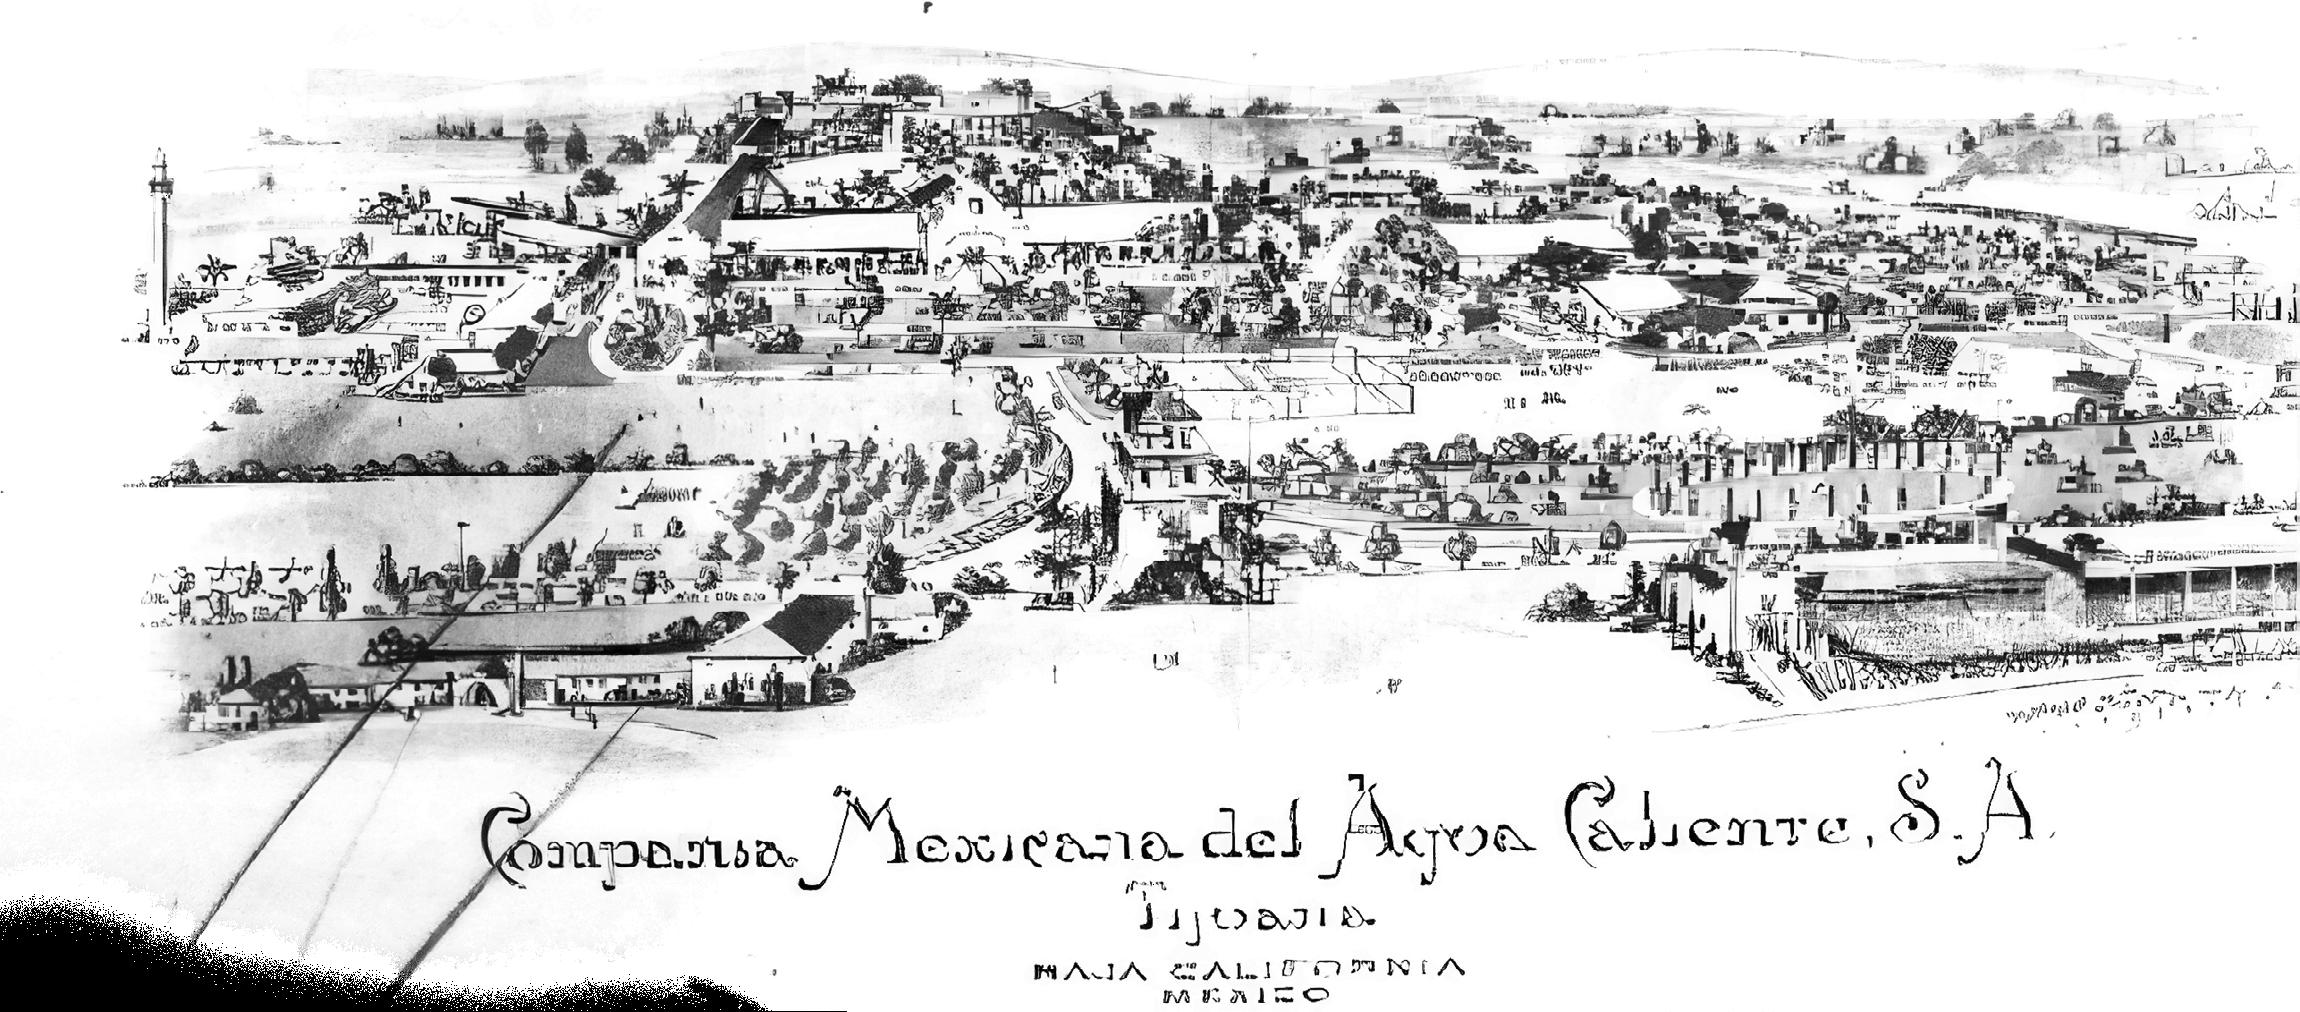 Compania Mexicana del Agua Caliente, S.A.
Tijuana
BAJA CALIFORNIA
MEXICO